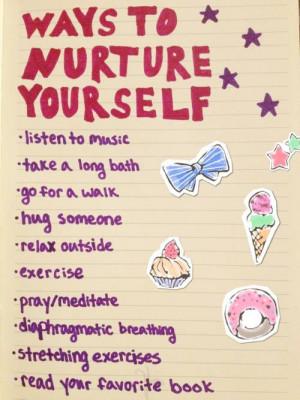 WAYS TO
NURTURE
YOURSELF
·listen to music
·take a long bath
·go for a walk
·hug someone
·relax outside
·exercise
·pray/meditate
·diaphragmatic breathing
·stretching exercises
·read your favorite book